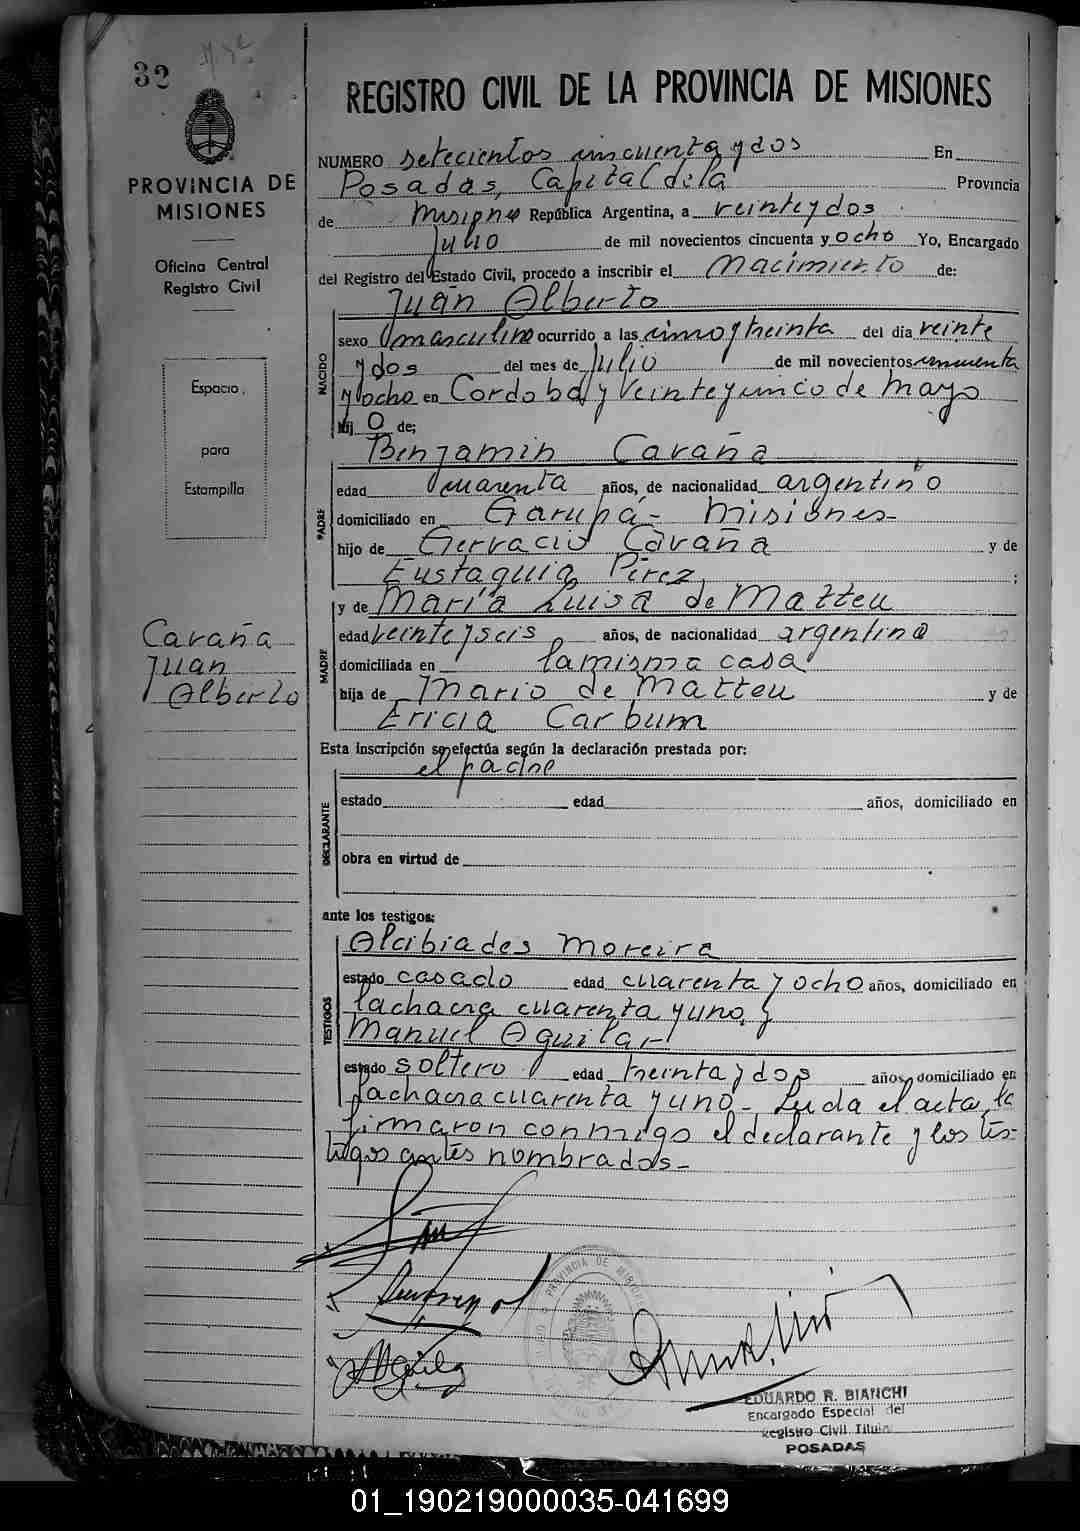 32
REGISTRO CIVIL DE LA PROVINCIA DE MISIONES
PROVINCIA DE
MISIONES
Oficina Central
Registro Civil
Espacio
para
Estampilla
Caraña
Juan
Alberto
NUMERO setecientos cincuenta y dos En
Posadas, Capital de la Provincia
de Misiones República Argentina, a veinte y dos
Julio de mil novecientos cincuenta y ocho Yo, Encargado
del Registro del Estado Civil, procedo a inscribir el Nacimiento de:
Juan Alberto
NACIDO
sexo masculino ocurrido a las cinco y treinta del día veinte
y dos del mes de Julio de mil novecientos cincuenta
y ocho en Cordoba y Veinte y cinco de Mayo
hij o de;
Benjamin Caraña
PADRE
edad cuarenta años, de nacionalidad argentino
domiciliado en Garupá - Misiones -
hijo de Gervacio Caraña y de
Eustaquia Pérez ;
y de María Luisa de Matteu
MADRE
edad veinte y seis años, de nacionalidad argentina
domiciliada en la misma casa
hija de Mario de Matteu y de
Ericia Carbum
Esta inscripción se efectúa según la declaración prestada por:
el padre
DECLARANTE
estado edad años, domiciliado en
obra en virtud de
ante los testigos:
Alcibiades Moreira
TESTIGOS
estado casado edad cuarenta y ocho años, domiciliado en
la chacra cuarenta y uno, y
Manuel Aguilar
estado soltero edad treinta y dos años, domiciliado en
la chacra cuarenta y uno - Leida el acta, la
firmaron conmigo el declarante y los tes-
tigos antes nombrados -
PROVINCIA DE MISIONES
EDUARDO R. BIANCHI
Encargado Especial del
Registro Civil Titular
POSADAS
01_190219000035-041699